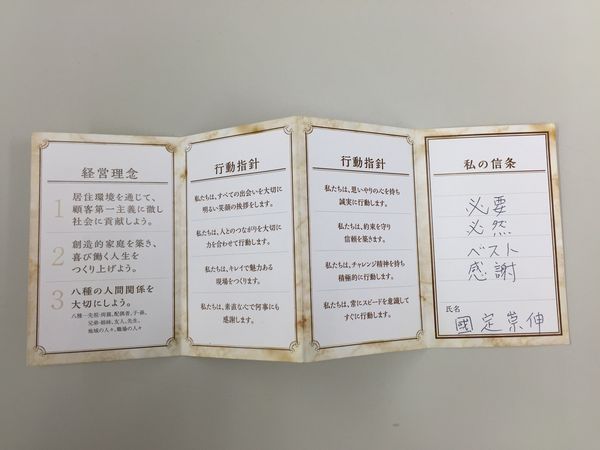 経営理念
1
居住環境を通じて、
顧客第一主義に徹し
社会に貢献しよう。
2
創造的家庭を築き、
喜び働く人生を
つくり上げよう。
3
八種の人間関係を
大切にしよう。
八種…先祖・両親、配偶者、子・孫、
兄弟・姉妹、友人、先生、
地域の人々、職場の人々
行動指針
私たちは、すべての出会いを大切に
明るい笑顔の挨拶をします。
私たちは、人とのつながりを大切に
力を合わせて行動します。
私たちは、キレイで魅力ある
現場をつくります。
私たちは、素直な心で何事にも
感謝します。
行動指針
私たちは、思いやりの心を持ち
誠実に行動します。
私たちは、約束を守り
信頼を築きます。
私たちは、チャレンジ精神を持ち
積極的に行動します。
私たちは、常にスピードを意識して
すぐに行動します。
私の信条
必要
必然
ベスト
感謝
氏名
國定崇伸